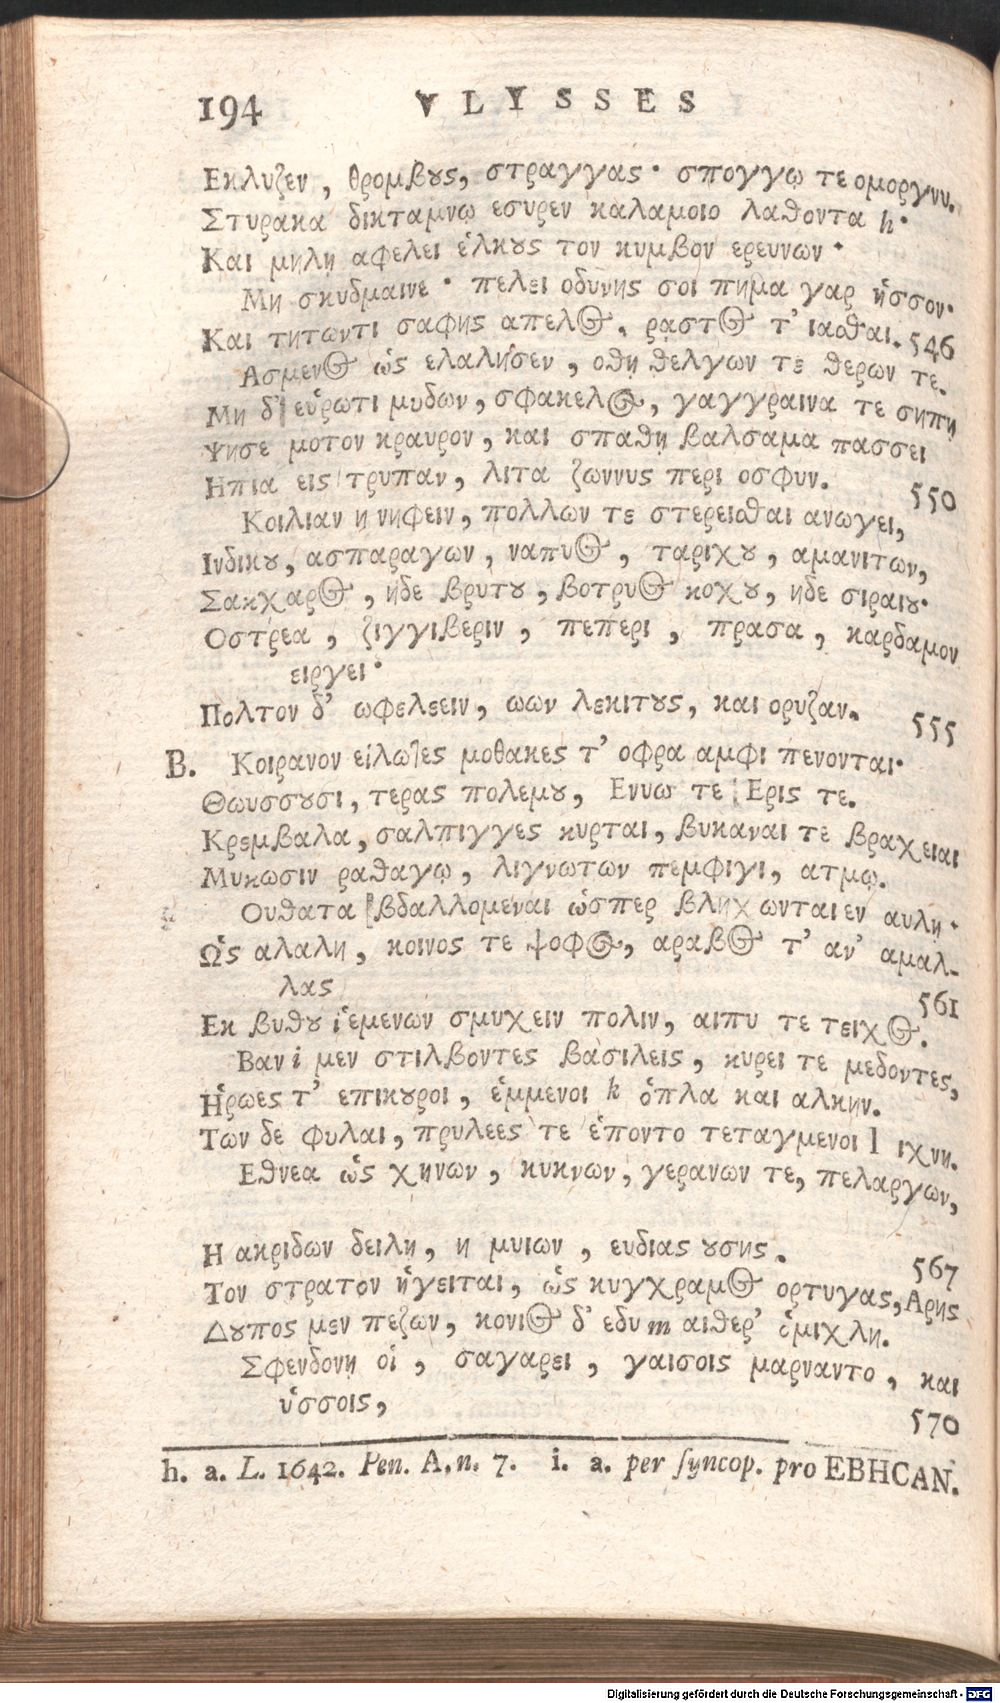 194 VLYSSES
Εκλυζεν, θρομβȣς, στραγγας· σπογγῳ τε ομοργνυ.
Στυρακα δικταμνῳ εσυρεν καλαμοιο λαθοντα h·
Και μηλῃ αφελει ἑλκȣς τον κυμβον ερευνων·
Μη σκυδμαινε· πελει οδυνης σοι πημα γαρ ἡσσον·
Και τητωντι σαφης απελος. ραστος τ' ιασθαι. 546
Ασμενος ὡς ελαλησεν, οθη θελγων τε θερων τε.
Μη δ' εὑρωτι μυδων, σφακελος, γαγγραινα τε σηπῃ
Ψησε μοτον κραυρον, και σπαθῃ βαλσαμα πασσει
Ηπια εις τρυπαν, λιτα ζωννυς περι οσφυν.
550
Κοιλιαν η νηφειν, πολλων τε στερεισθαι ανωγει,
Ινδικȣ, ασπαραγων, ναπυος, ταριχȣ, αμανιτων,
Σακχαρος, ηδε βρυτȣ, βοτρυος κοχȣ, ηδε σιραιȣ·
Οστρεα, ζιγγιβεριν, πεπερι, πρασα, καρδαμον
ειργει·
Πολτον δ' ωφελεειν, ωων λεκιτȣς, και ορυζαν.
555
B. Κοιρανον εἱλωτες μοθακες τ' οφρα αμφι πενονται·
Θωυσσȣσι, τερας πολεμȣ, Ενυω τε Ερις τε.
Κρεμβαλα, σαλπιγγες κυρται, βυκαναι τε βραχειαι
Μυκωσιν ραθαγῳ, λιγνωτων πεμφιγι, ατμῳ.
Ουθατα βδαλλομεναι ὡσπερ βληχωνται εν αυλῃ·
Ὡς αλαλη, κοινος τε ψοφος, αραβος τ' αν' αμαλ-
λας
561
Εκ βυθȣ ἱεμενων σμυχειν πολιν, αιπυ τε τειχος.
Βαν i μεν στιλβοντες βασιλεις, κυρει τε μεδοντες,
Ἡρωες τ' επικȣροι, ἑμμενοι k ὁπλα και αλκην.
Των δε φυλαι, πρυλεες τε ἑποντο τεταγμενοι l ιχνη.
Εθνεα ὡς χηνων, κυκνων, γερανων τε, πελαργων,
Η ακριδων δειλη, η μυιων, ευδιας ȣσης.
567
Τον στρατον ἡγειται, ὡς κυγχραμος ορτυγας, Αρης
Δȣπος μεν πεζων, κονιος δ' εδυ m αιθερ' ὁμιχλη.
Σφενδονῃ οἱ, σαγαρει, γαισοις μαρναντο, και
ὑσσοις,
570
h. a. L. 1642. Pen. A. n. 7. i. a. per ſyncop. pro EBHCAN.
Digitalisierung gefördert durch die Deutsche Forschungsgemeinschaft - DFG